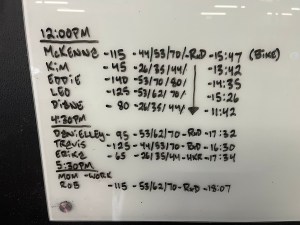 12:00PM
McKENNE -115 -44/53/70/-RxD -15:47 (BIKE)
Kim -45 -26/35/44/ -13:42
EDDIE -140 -53/70/80/ -14:35
LEO -125 -53/62/70/ -15:26
DIANE -80 -26/35/44/ -11:42
4:30PM
DANIELLEY- 95 -53/62/70 -RxD -17:32
TRAVIS -125 -44/53/70 -RxD -16:30
ERIKA -65 -26/35/44 -HKR -17:34
5:30PM
MOM -WORK
ROB -115 -53/62/70 -RxD -18:07